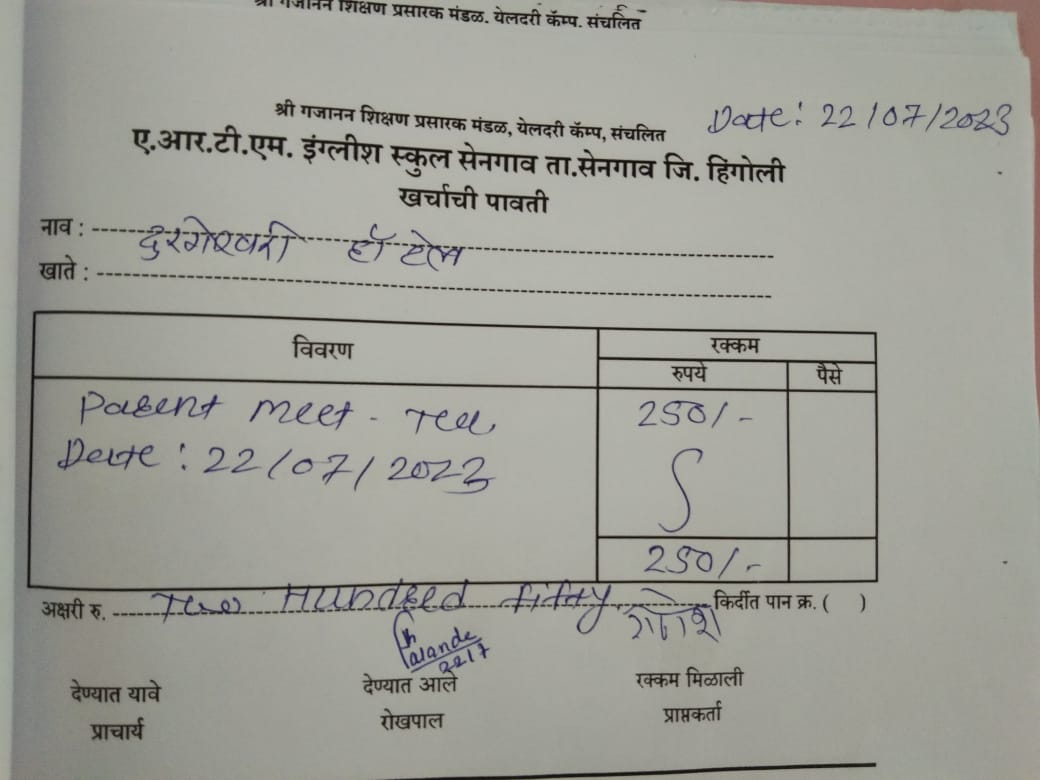 श्री गजानन शिक्षण प्रसारक मंडळ. येलदरी कॅम्प. संचलित
Date: 22/07/2023
श्री गजानन शिक्षण प्रसारक मंडळ, येलदरी कॅम्प, संचलित
ए.आर.टी.एम. इंग्लीश स्कुल सेनगाव ता.सेनगाव जि. हिंगोली
खर्चाची पावती
नाव : दुरगेश्वरी हॉटेल
खाते :
विवरण रक्कम
रुपये पैसे
Parent meet - Tea 250/-
Date : 22/07/2023
250/-
अक्षरी रु. Two Hundred fifty किर्दीत पान क्र. ( )
गणेश
22/7
देण्यात यावे देण्यात आले रक्कम मिळाली
प्राचार्य रोखपाल प्राप्तकर्ता